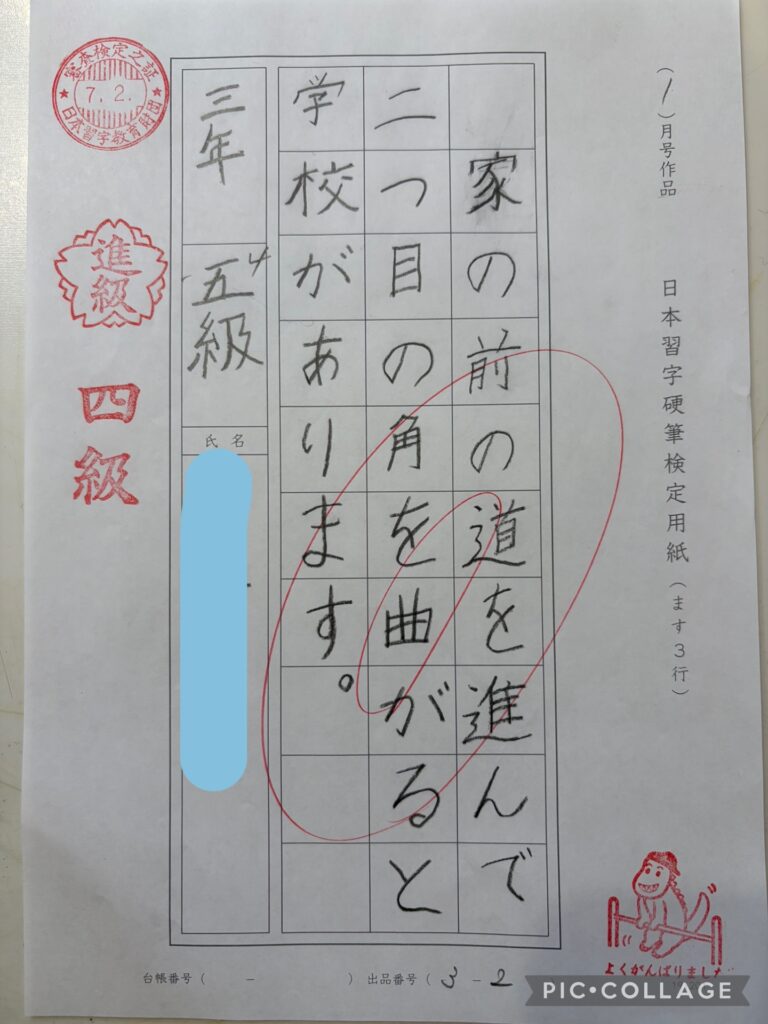 (1)月号作品
日本習字硬筆検定用紙(ます3行)
家の前の道を進んで
二つ目の角を曲がると
学校があります。
三年
五級
氏名
審査検定之証
7.2.
日本習字教育財団
進級
四級
よくがんばりました
台帳番号( - )
出品番号(3-2
PIC•COLLAGE